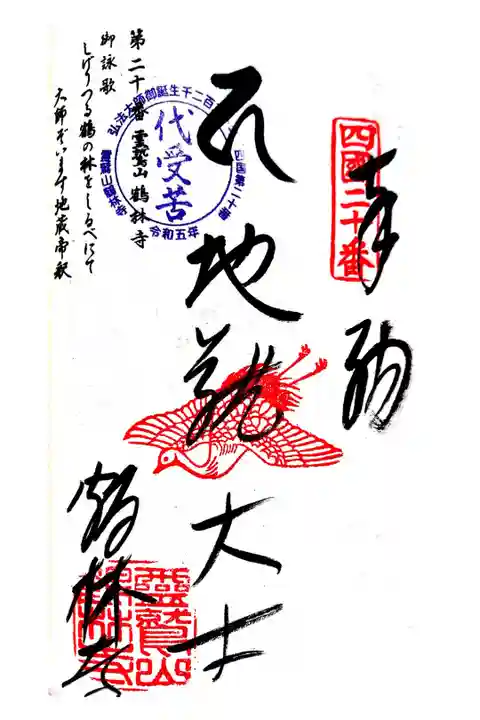 四國二十番
奉納
地蔵大士
鶴林寺
靈鷲山
弘法大師御誕生千二百
四国第二十番
令和五年
靈鷲山鶴林寺
代受苦
第二十番 霊鷲山 鶴林寺
御詠歌
しげりつる鶴の林をしるべにて
大師ぞいます地蔵帝釈